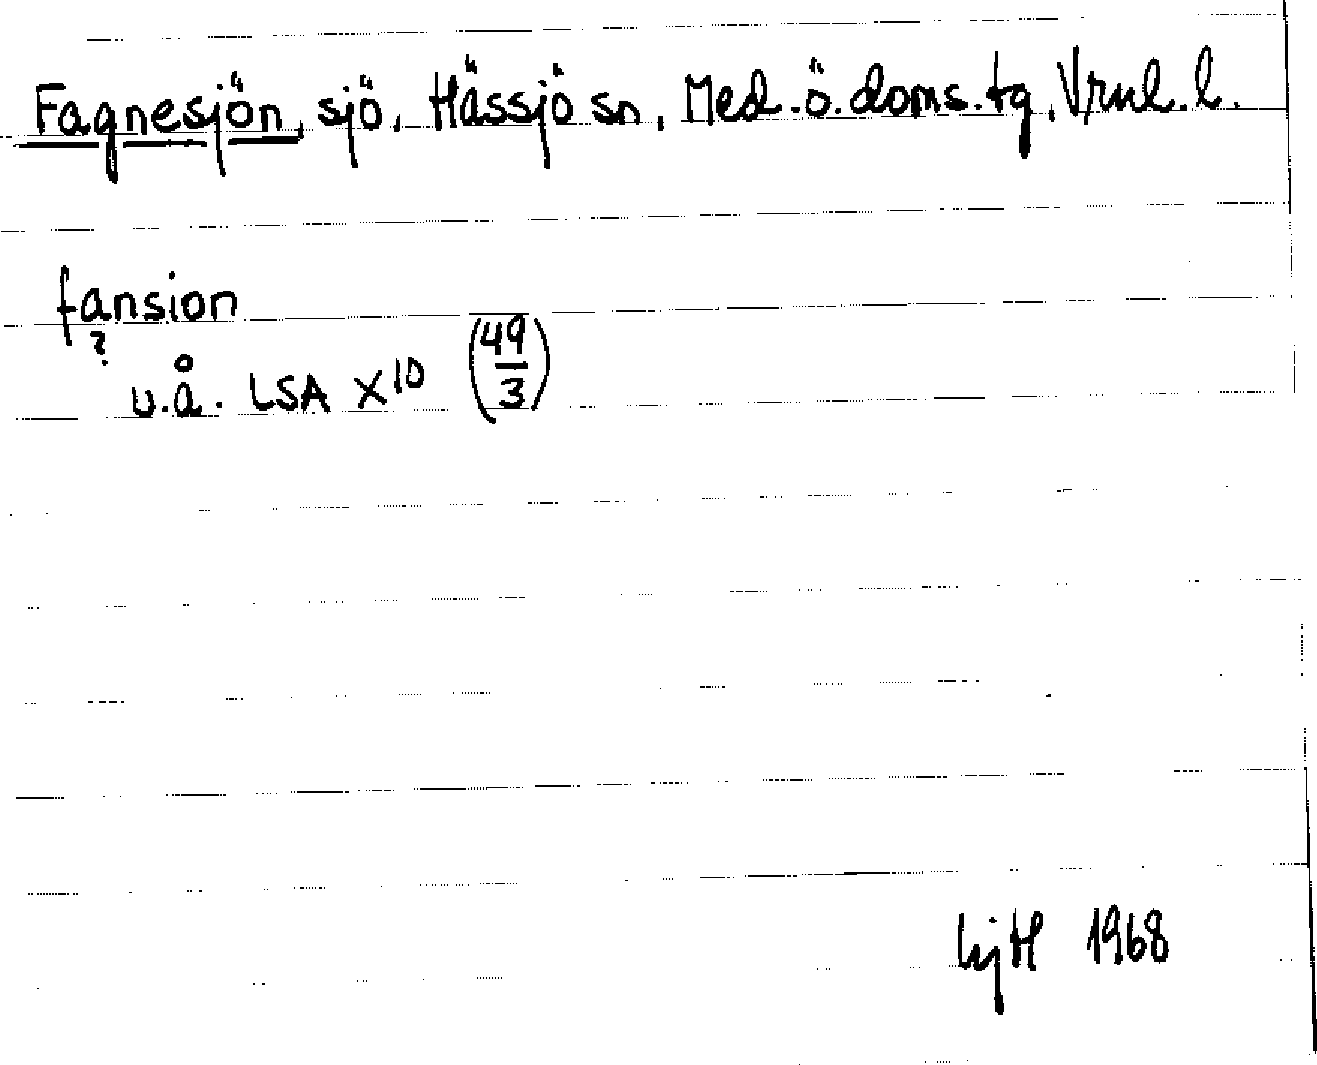 Fagnesjön, sjö. Hässjö sn, Med.ö.doms.tg. Vrnl.l.
fansion
?
u.å. LSA X10 (49/3)
1968